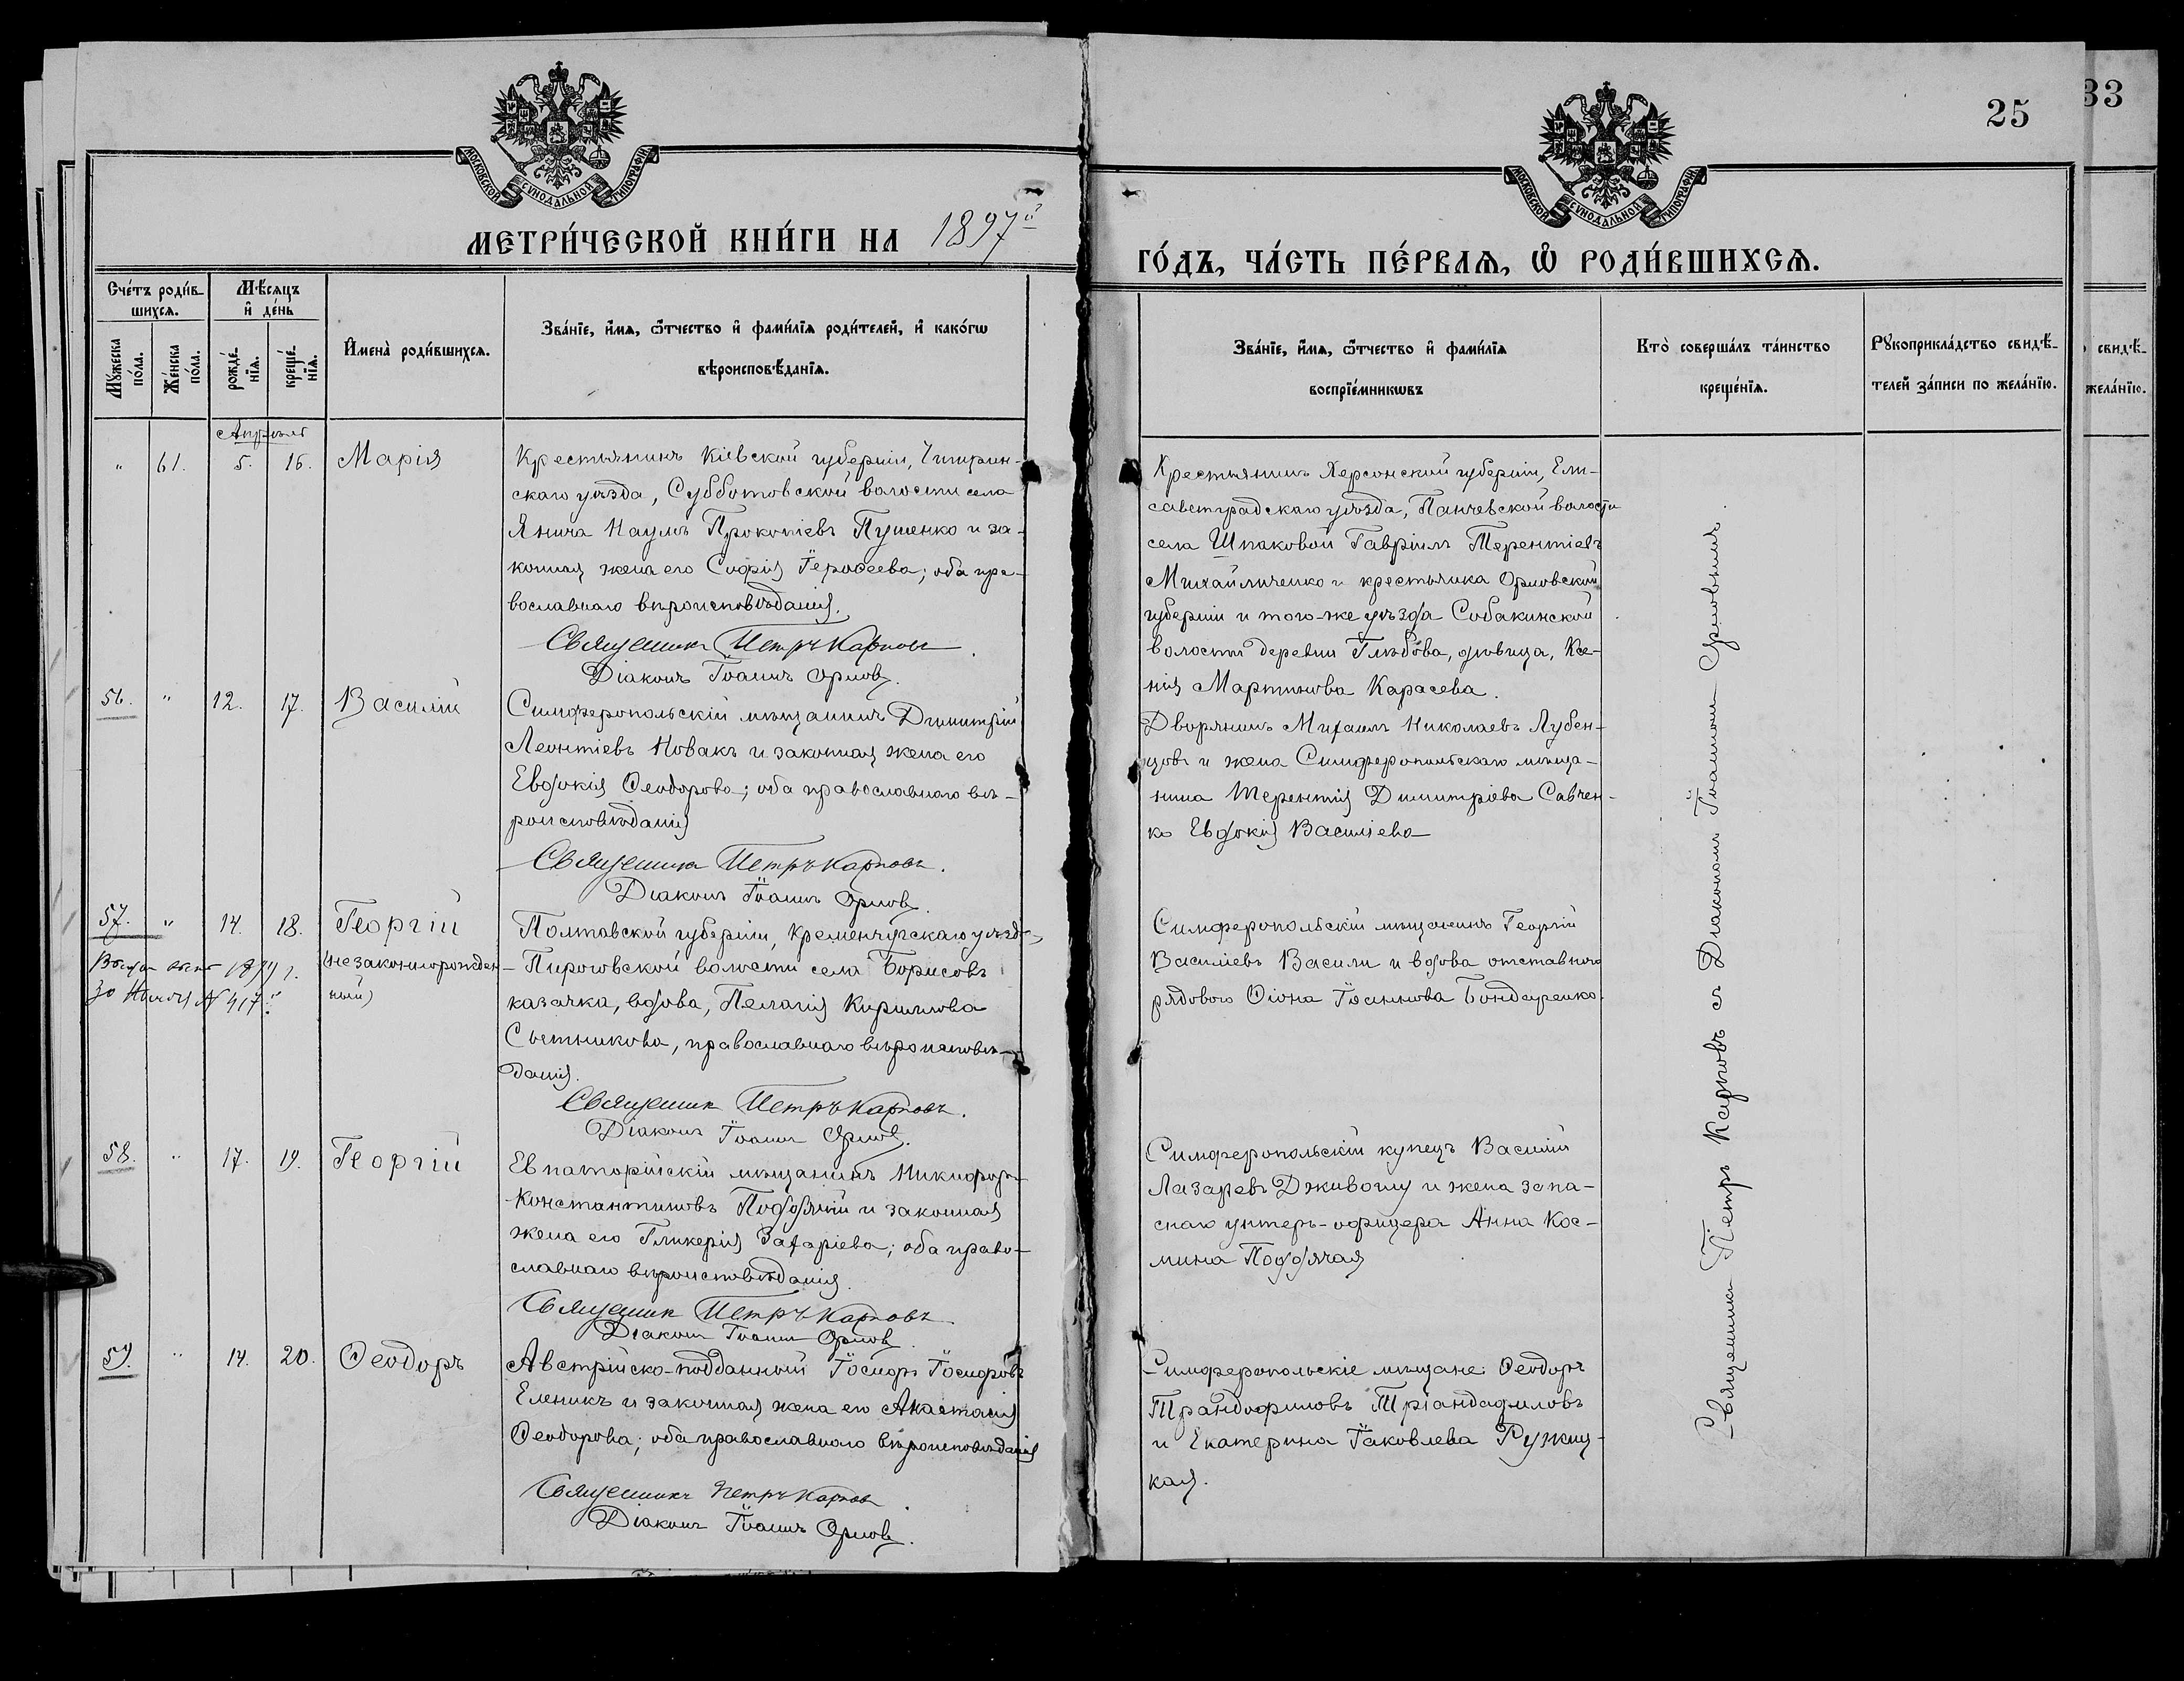 25
33
МОСКОВСКОЙ СУНОДАЛЬНОЙ ТИПОГРАФІИ
МОСКОВСКОЙ СУНОДАЛЬНОЙ ТИПОГРАФІИ
МЕТРИ́ЧЕСКОЙ КНИ́ГИ НА 1897й
ГО́ДЪ, ЧА́СТЬ ПЕ́РВАѦ, Ѡ РОДИ́ВШИХСѦ.
Сче́тъ роди́в-
шихсѧ.
Мꙋ́жеска по́ла.
Же́нска по́ла.
Мѣ́сѧцъ
и де́нь
рожде́-
нїѧ.
креще́-
нїѧ.
Имена̀ роди́вшихсѧ.
Зва́нїе, и́мѧ, ѻ́тчество и фами́лїѧ роди́телей, и како́гѡ
вѣроисповѣ́данїѧ.
Зва́нїе, и́мѧ, ѻ́тчество и фами́лїѧ
воспрїе́мникѡвъ
Кто̀ соверша́лъ та́инство
креще́нїѧ.
Рꙋкоприкла́дство свидѣ́-
телей за́писи по жела́нїю.
свидѣ́-
жела́нїю.
Апрѣль
" 61. 5. 16. Марія
Крестьянинъ Кіевской губерніи, Чигрин-
скаго уѣзда, Субботовской волости села
Янича Наумъ Прокопіевъ Пушенко и за-
конная жена его Софія Ѳеросеева; оба пра-
вославнаго вѣроисповѣданія.
Священникъ Петръ Карповъ
Діаконъ Іоаннъ Орловъ.
Крестьянинъ Херсонской губерніи, Ели-
саветградскаго уѣзда, Панчевской волости
села Шпаковой Гавріилъ Терентіевъ
Михайличенко и крестьянка Орловской
губерніи и того-же уѣзда Собакинской
волости деревни Глѣбова, дѣвица, Ксе-
нія Мартинова Карасева.
56. " 12. 17. Василій
Симферопольскій мѣщанинъ Димитрій
Леонтіевъ Новакъ и законная жена его
Евдокія Ѳеодорова; оба православнаго вѣ-
роисповѣданія
Священникъ Петръ Карповъ.
Діаконъ Іоаннъ Орловъ.
Дворянинъ Михаилъ Николаевъ Лубен-
цовъ и жена Симферопольскаго мѣща-
нина Терентія Димитріева Савчен-
ко Евдокія Василіева
57. " 14. 18. Георгій
(незаконнорожден-
ный)
30 № 417.
Полтавской губерніи, Кременчугскаго уѣзда,
Пироговской волости села Борисовъ
казачка, вдова, Пелагія Кириллова
Сытникова, православнаго вѣроисповѣ-
данія.
Священник Петръ Карповъ.
Діаконъ Іоаннъ Орловъ.
Симферопольскій мѣщанинъ Георгій
Василіевъ Васили и вдова отставного
рядового Ѳіона Іоаннова Бондаренко.
58. " 17. 19. Георгій
Евпаторійскій мѣщанинъ Никифоръ
Константиновъ Поддячій и законная
жена его Гликерія Захаріева; оба право-
славнаго вѣроисповѣданія
Священник Петръ Карповъ
Діаконъ Іоаннъ Орловъ.
Симферопольскій купецъ Василій
Лазаревъ Дживоглу и жена запа-
снаго унтеръ-офицера Анна Кос-
мина Поддячая
59. " 14. 20. Ѳеодоръ
Австрійско-подданный Іосифъ Іосифовъ
Еленикъ и законная жена его Анастасія
Ѳеодорова; оба православнаго вѣроисповѣданія
Священникъ Петръ Карповъ
Діаконъ Іоаннъ Орловъ.
Симферопольскіе мѣщане: Ѳеодоръ
Трандофиловъ Тріандафиловъ
и Екатерина Іаковлева Ружиц-
кая.
Священникъ Петръ Карповъ съ Діакономъ Іоанномъ Орловымъ.